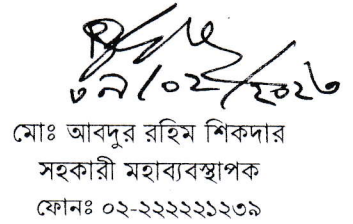 মোঃ আবদুর রহিম শিকদার
সহকারী মহাব্যবস্থাপক
ফোনঃ ০২-২২২২২১২৩৯